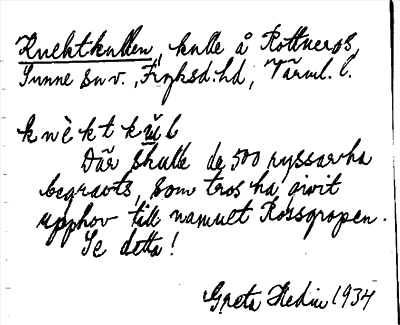 Knektkullen, kulle å Rottneros,
Sunne sn v., Fryksd. hd, Värml. l.
knèktkŭl
Där skulle de 500 ryssar ha
begravts, som tros ha givit
upphov till namnet Rossgropen.
Se detta!
Greta Hedin 1934